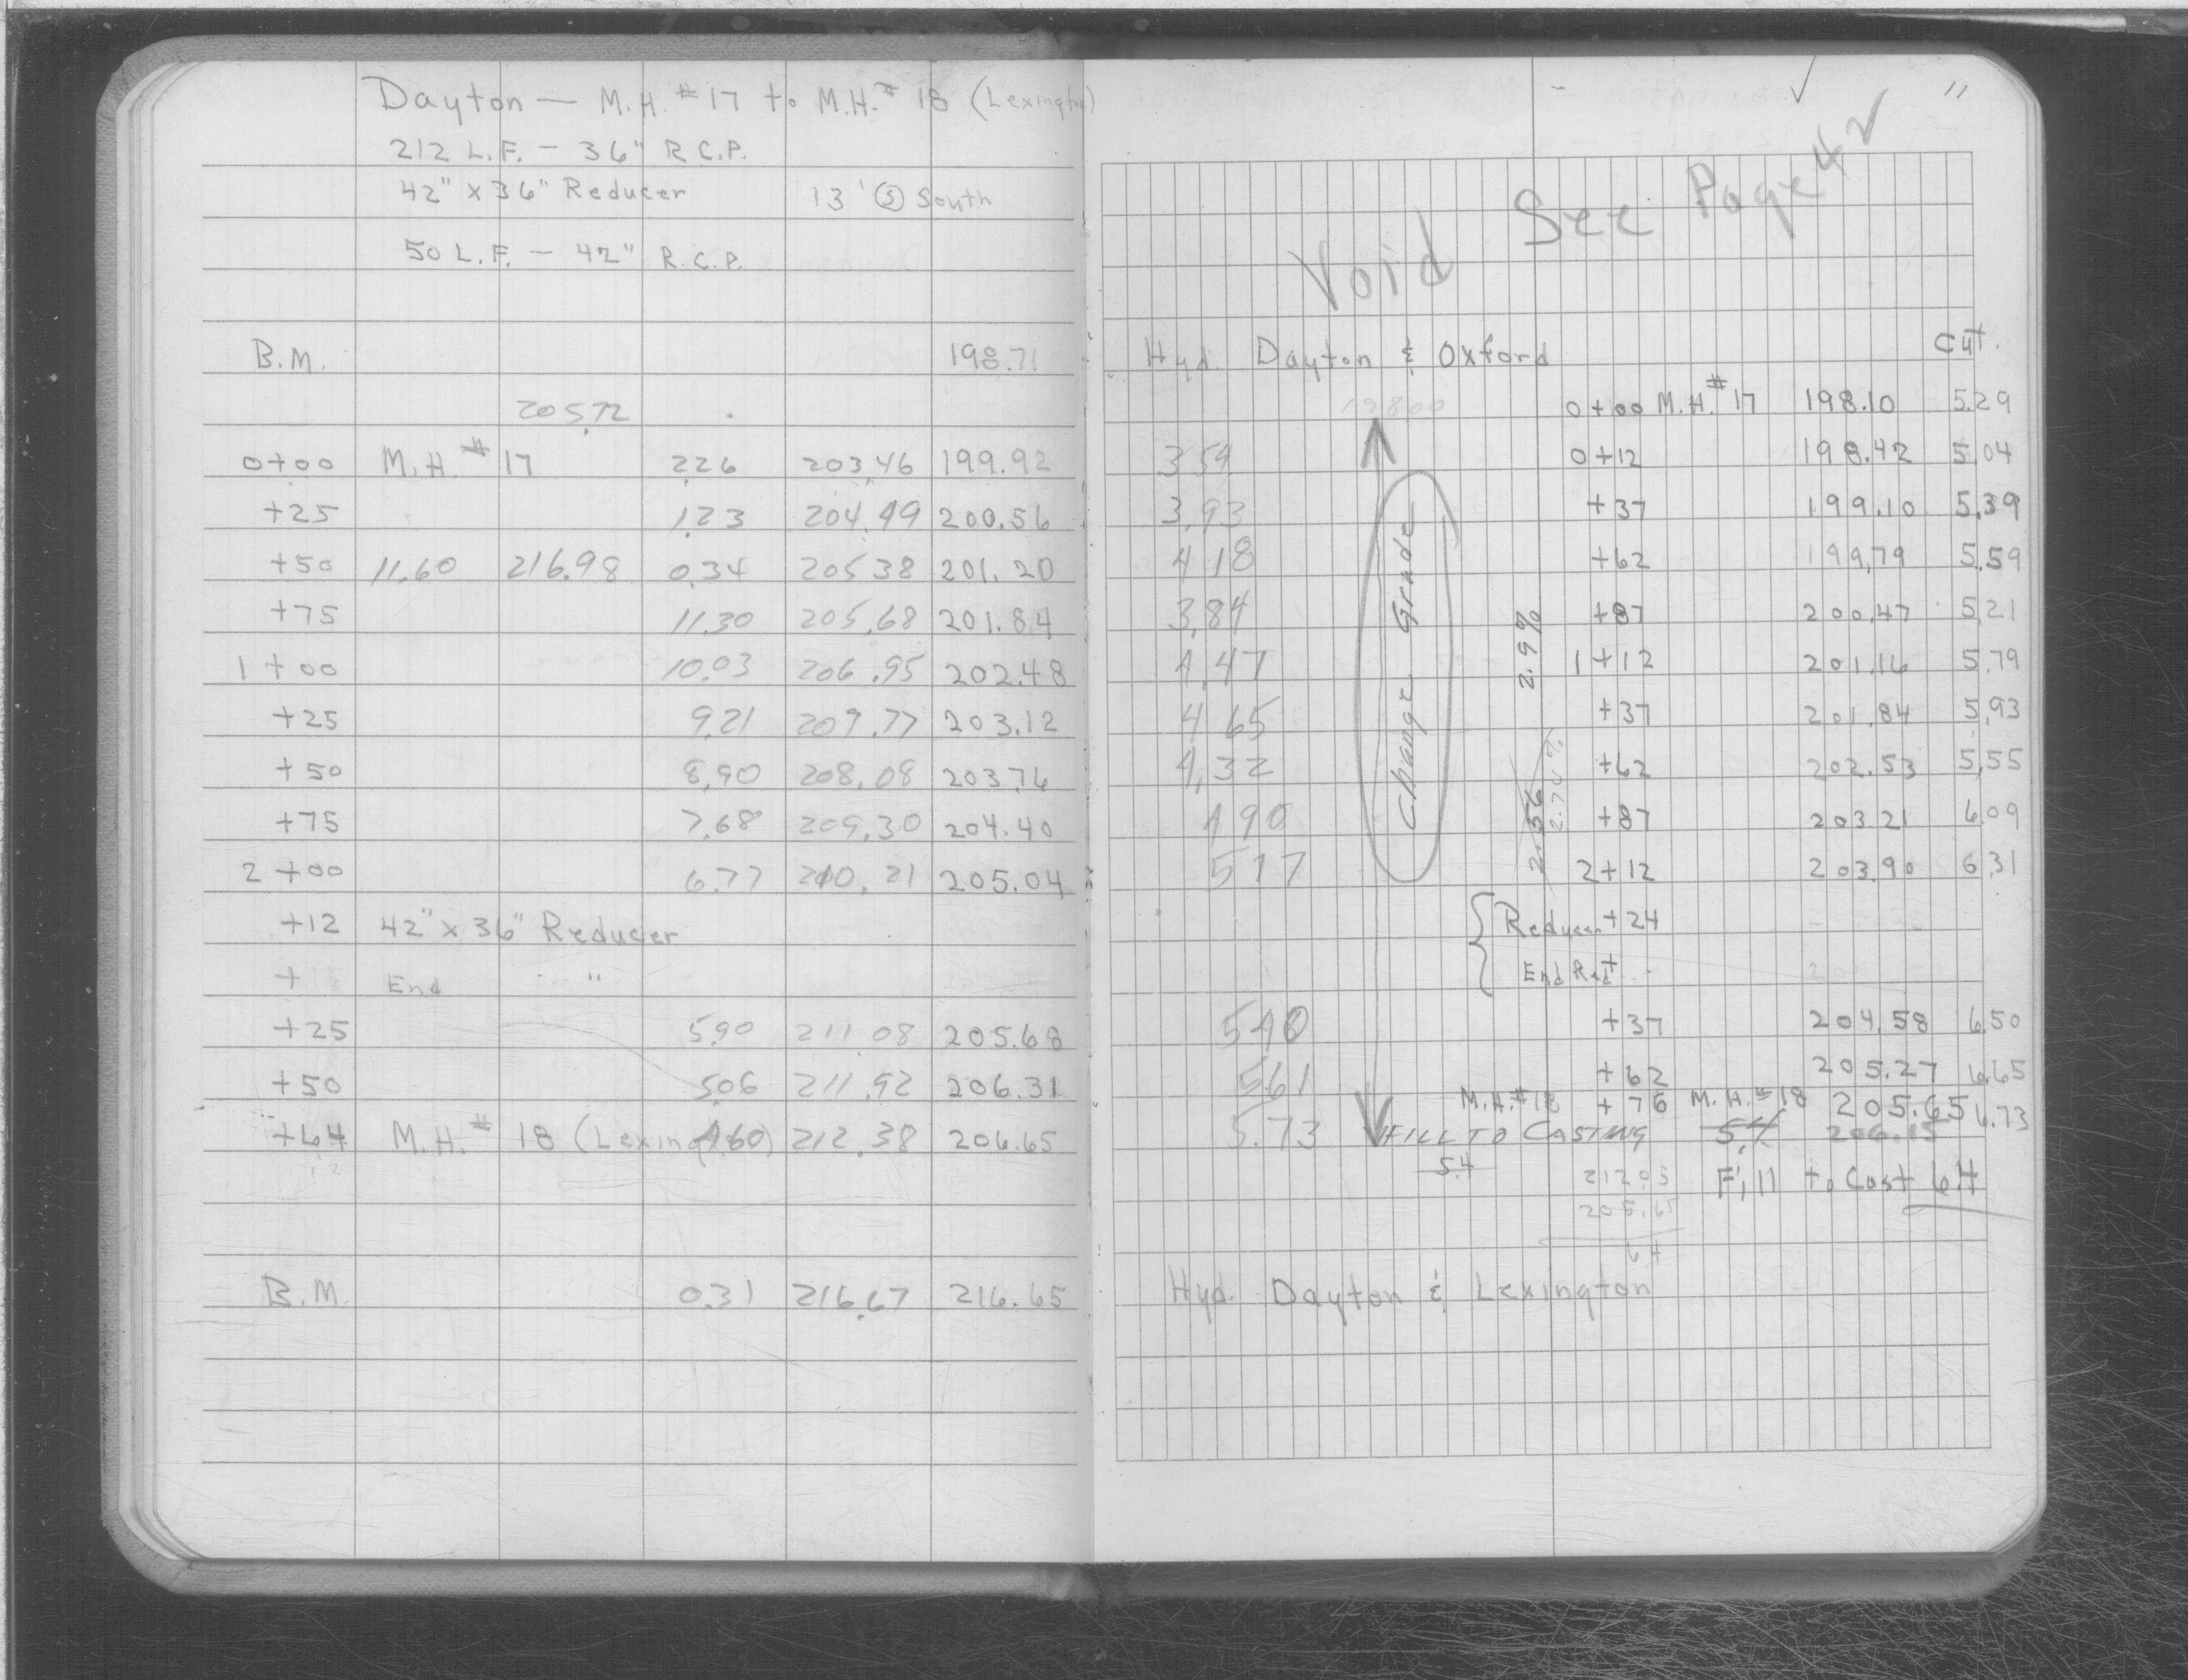 Dayton — M.H. #17 to M.H. #18 (Lexington)
212 L.F. - 36" R.C.P.
42" x 36" Reducer 13' Ⓢ South
50 L.F. - 42" R.C.P.
B.M. 198.71
205.72
0+00 M.H. #17 2.26 203.46 199.92
+25 1.23 204.49 200.56
+50 11.60 216.98 0.34 205.38 201.20
+75 11.30 205.68 201.84
1+00 10.03 206.95 202.48
+25 9.21 207.77 203.12
+50 8.90 208.08 203.76
+75 7.68 209.30 204.40
2+00 6.77 210.21 205.04
+12 42" x 36" Reducer
+ End "
+25 5.90 211.08 205.68
+50 5.06 211.92 206.31
+64 M.H. #18 (Lexington) 4.60 212.38 206.65
B.M. 0.31 216.67 216.65
11
Void See Page 42
Hyd. Dayton & Oxford Cut.
198.00 0+00 M.H. #17 198.10 5.29
3.54 0+12 198.42 5.04
3.93 +37 199.10 5.39
4.18 +62 199.79 5.59
3.84 +87 200.47 5.21
4.47 1+12 201.16 5.79
4.65 +37 201.84 5.93
4.32 +62 202.53 5.55
4.90 +87 203.21 6.09
5.17 2+12 203.90 6.31
Change Grade
2.9%
2.56
2.74%
Reducer +24
End Red +
5.40 +37 204.58 6.50
5.61 +62 205.27 6.65
M.H. #18 +76 M.H. #18 205.65 6.73
5.73 FILL TO CASTING 5.4 206.15
5.4
212.05 Fill to Cast 6.4
205.65
6.4
Hyd. Dayton & Lexington